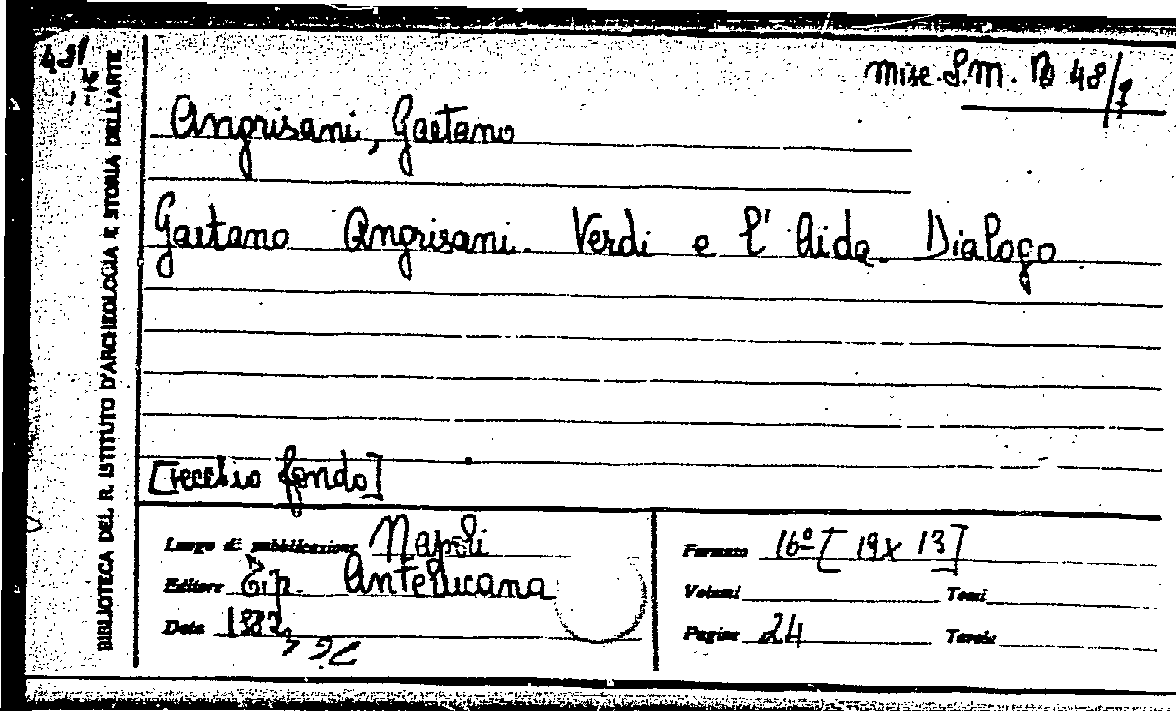 misc. S.M. B 48/7
Angrisani, Gaetano
Gaetano Angrisani. Verdi e l'Aida. Dialogo
[vecchio fondo]
Luogo di pubblicazione Napoli
Editore Tip. Antellicana
Data 1882
Formato 16º [19x13]
Volumi Tomi
Pagine 24 Tavole
BIBLIOTECA DEL R. ISTITUTO D'ARCHEOLOGIA E STORIA DELL'ARTE